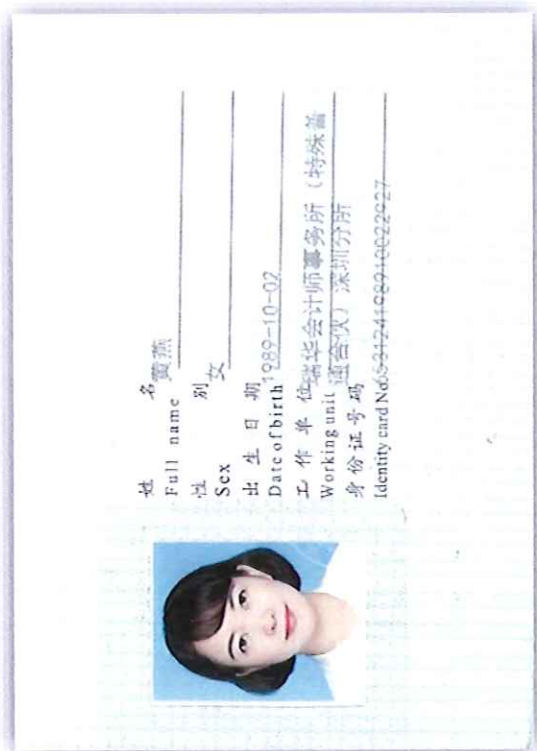 姓 名 黄燕
Full name
性 别 女
Sex
出 生 日 期 1989-10-02
Date of birth
工 作 单 位 瑞华会计师事务所（特殊普
Working unit 通合伙）深圳分所
身份证号码
Identity card No. 653124198910022927